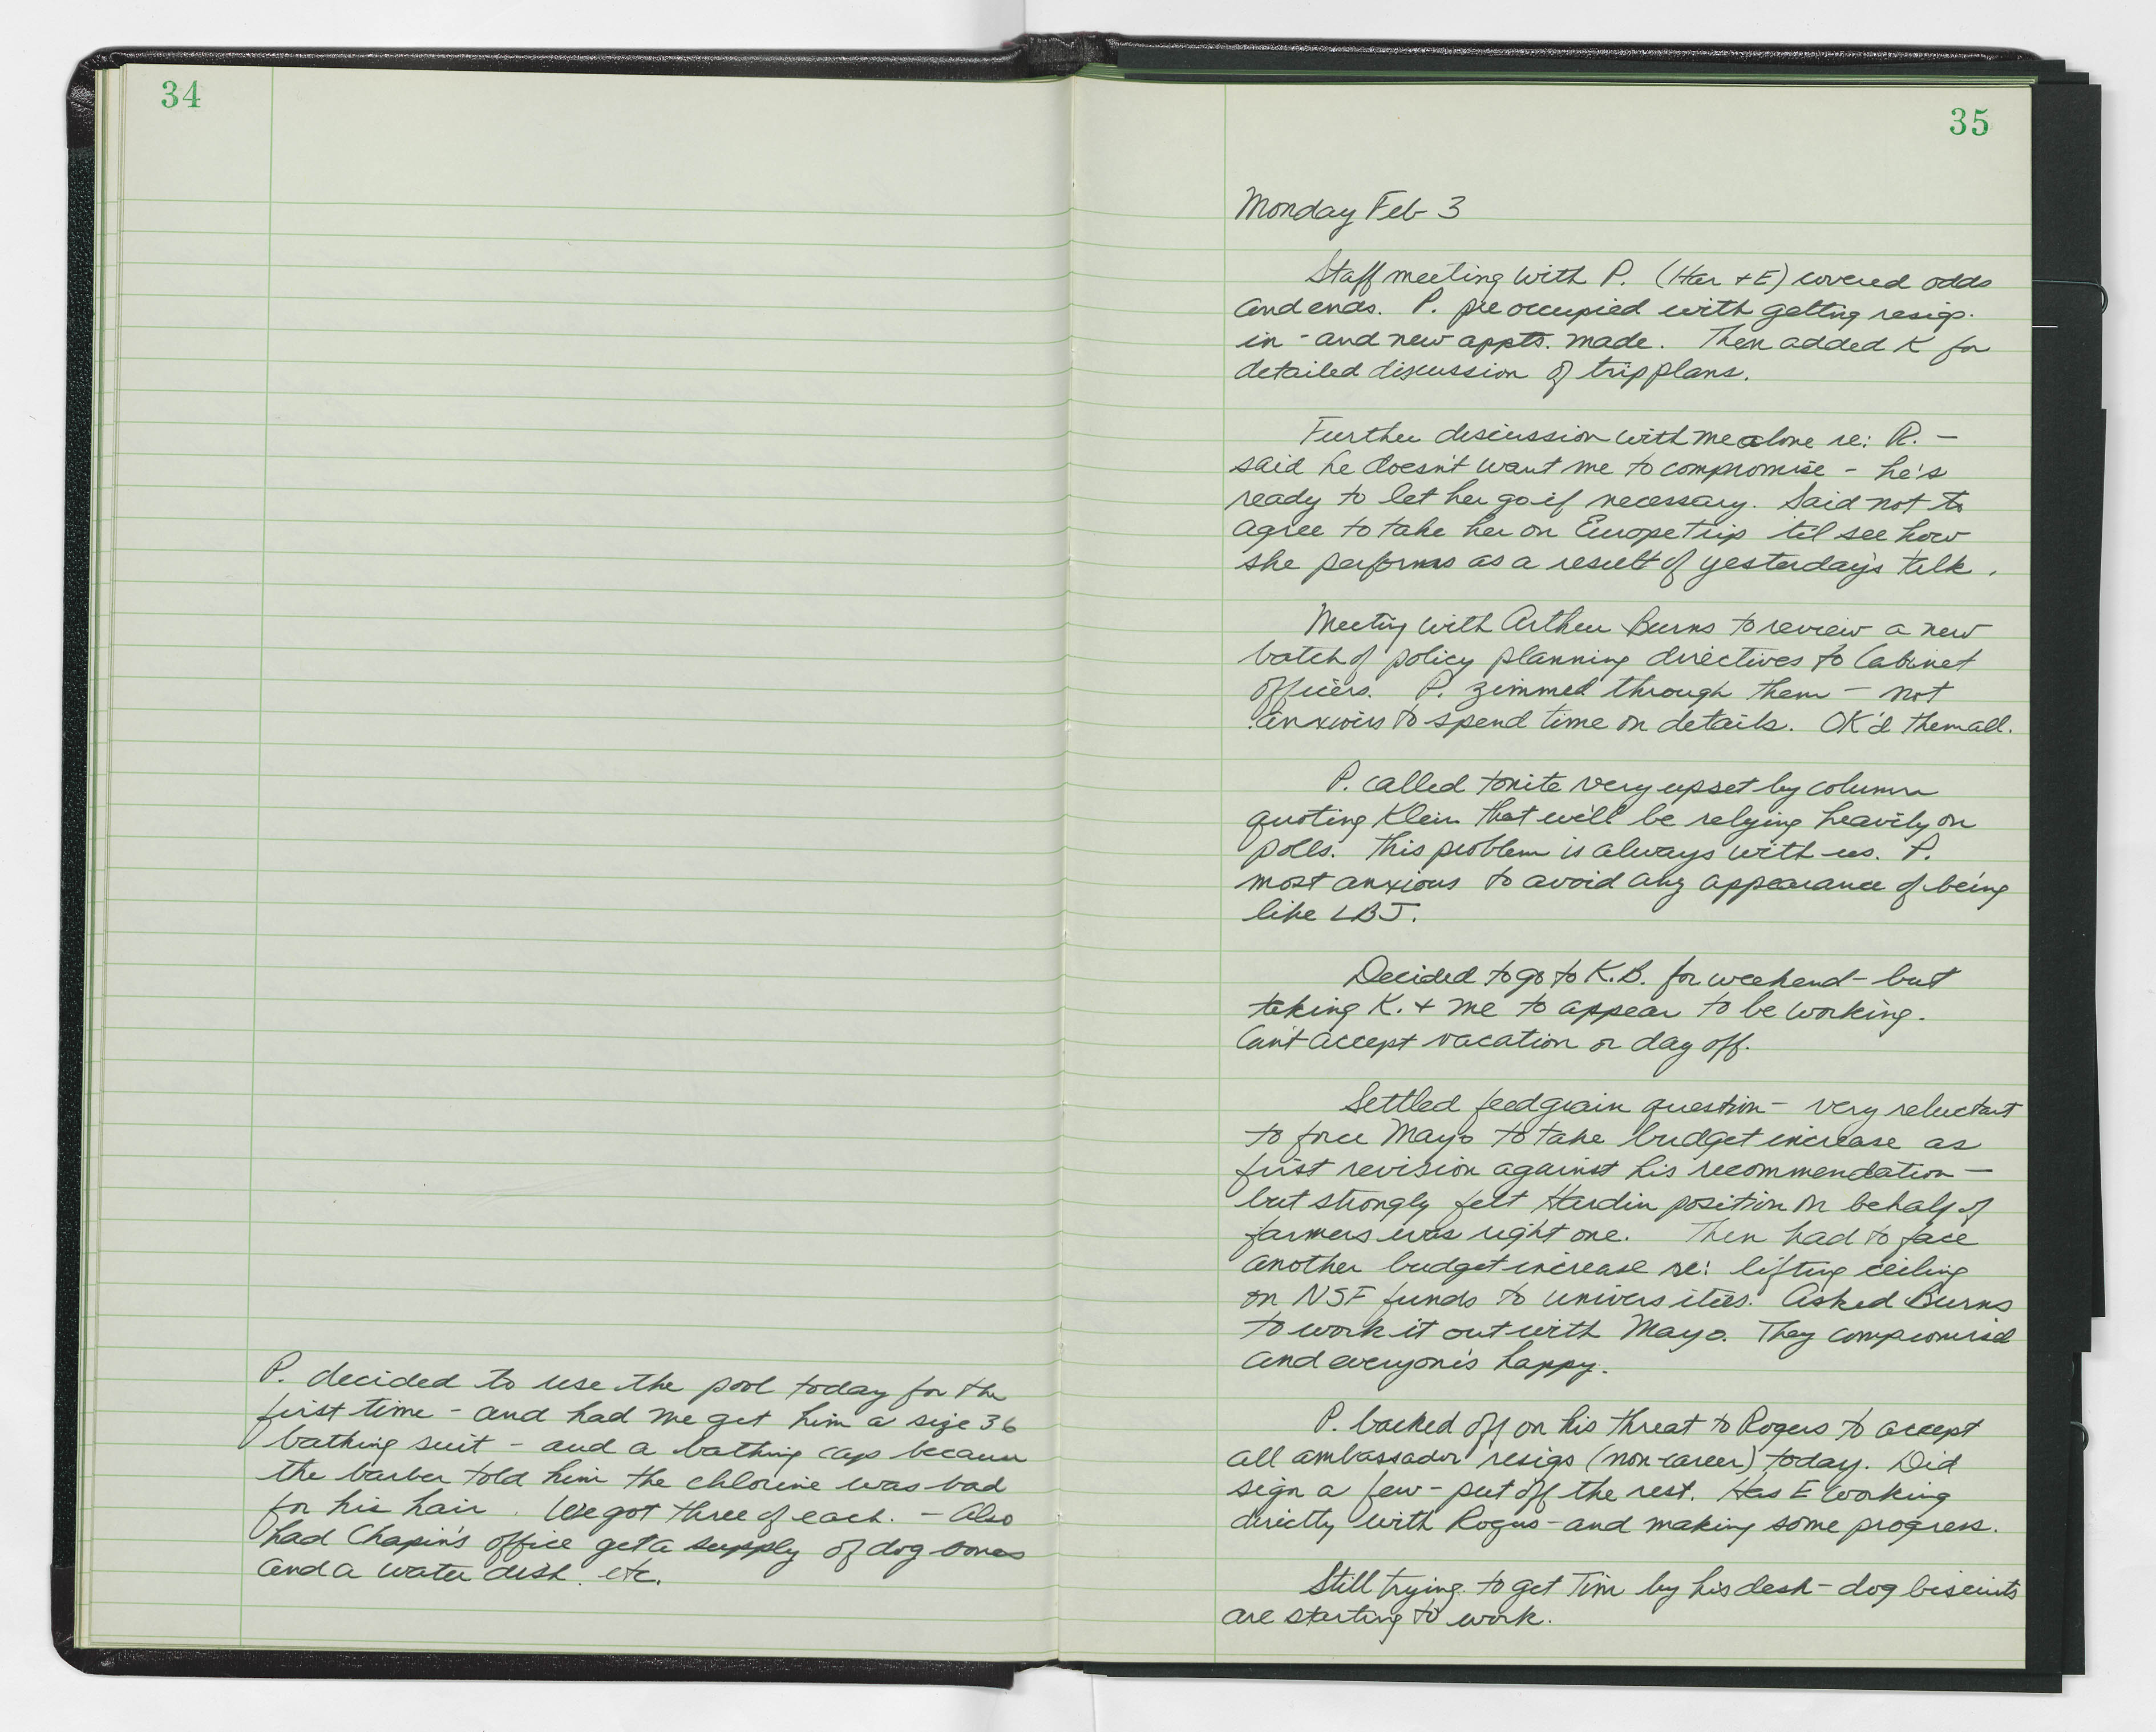 34
P. decided to use the pool today for the
first time - and had me get him a size 36
bathing suit - and a bathing cap because
the barber told him the chlorine was bad
for his hair. We got three of each. - Also
had Chapin's office get a supply of dog bones
and a water dish. etc.
35
Monday Feb 3
Staff meeting with P. (Har + E) covered odds
and ends. P. preoccupied with getting resigs.
in - and new appts. made. Then added K for
detailed discussion of trip plans.
Further discussion with me alone re: R. -
said he doesn't want me to compromise - he's
ready to let her go if necessary. Said not to
agree to take her on Europe trip til see how
she performs as a result of yesterday's talk.
Meeting with Arthur Burns to review a new
batch of policy planning directives to Cabinet
officers. P. zimmed through them - not
anxious to spend time on details. OK'd them all.
P. called tonite very upset by column
quoting Klein that we'll be relying heavily on
polls. This problem is always with us. P.
most anxious to avoid any appearance of being
like LBJ.
Decided to go to K.B. for weekend - but
taking K. + me to appear to be working.
Can't accept vacation or day off.
Settled feedgrain question - very reluctant
to force Mayo to take budget increase as
first revision against his recommendation -
but strongly felt Hardin position on behalf of
farmers was right one. Then had to face
another budget increase re: lifting ceiling
on NSF funds to universities. Asked Burns
to work it out with Mayo. They compromised
and everyone's happy.
P. backed off on his threat to Rogers to accept
all ambassador resigs (non-career) today. Did
sign a few - put off the rest. Has E working
directly with Rogers - and making some progress.
Still trying to get Tim by his desk - dog biscuits
are starting to work.